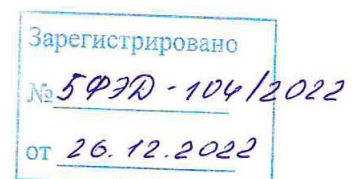 Зарегистрировано
№ 5ФЭД-104/2022
от 26.12.2022